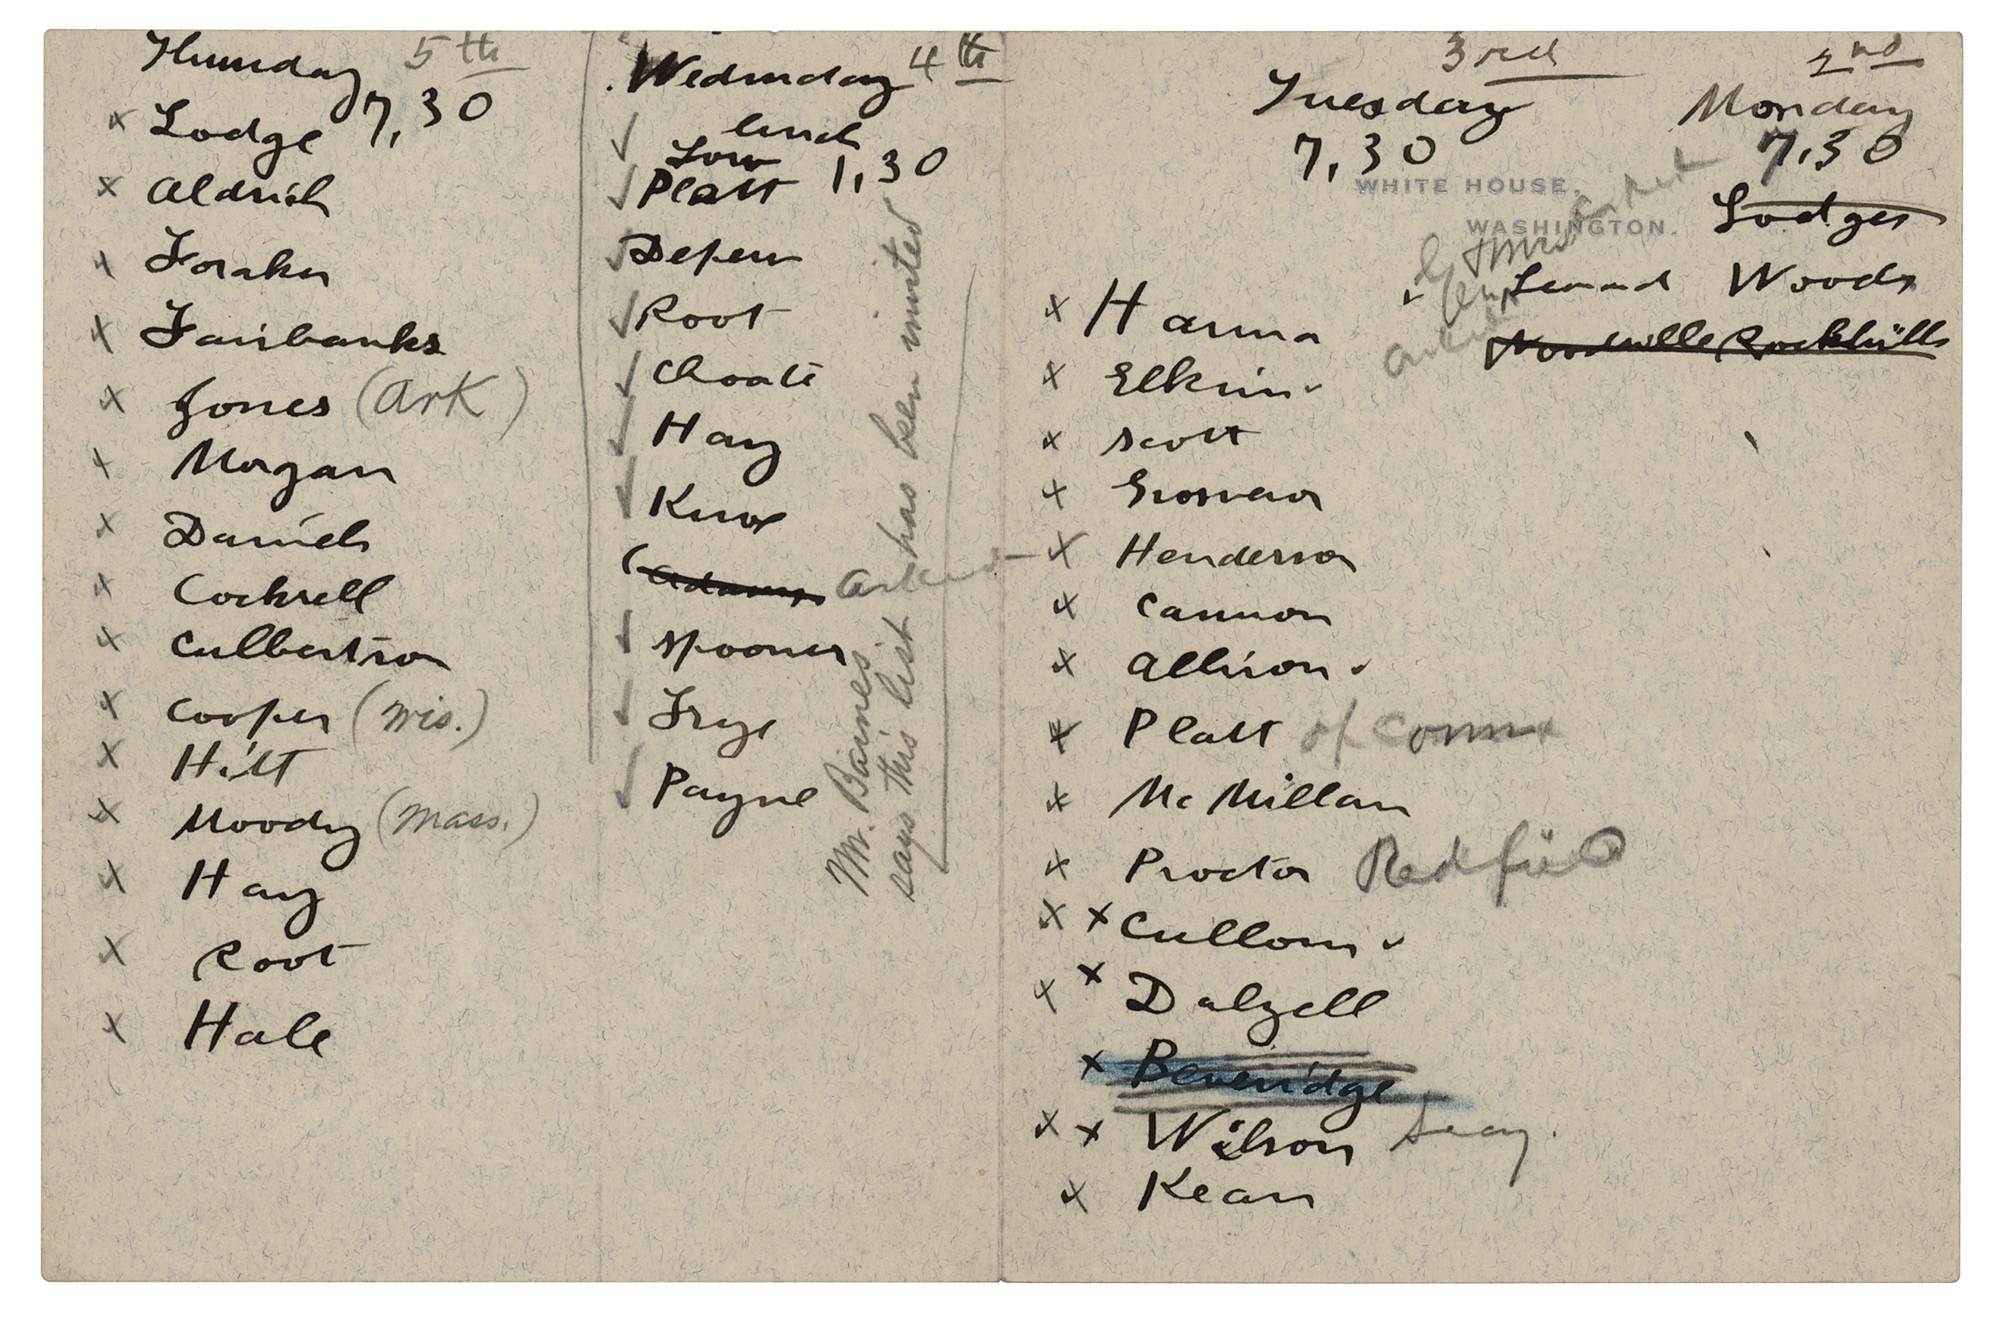 Thursday 5th
7,30
Lodge
Aldrich
Foraker
Fairbanks
Jones (Ark)
Morgan
Daniel
Cockrell
Culbertson
Cooper (Wis.)
Hitt
Moody (Mass.)
Hay
Root
Hale
Wednesday 4th
lunch
1,30
Low
Platt
Depew
Root
Choate
Hay
Knox
Adams asked
Spooner
Frye
Payne
Mr. Barnes
says this list has been invited
3rd
Tuesday
7,30
WHITE HOUSE,
WASHINGTON.
Hanna
Elkins
Scott
Grosvenor
Henderson
Cannon
Allison
Platt of Conn
McMillan
Proctor Redfield
Cullom
Dalzell
Beveridge
Wilson Secy.
Kean
2nd
Monday
7,30
Lodges
Leonard Woods
Woodville Rockhills